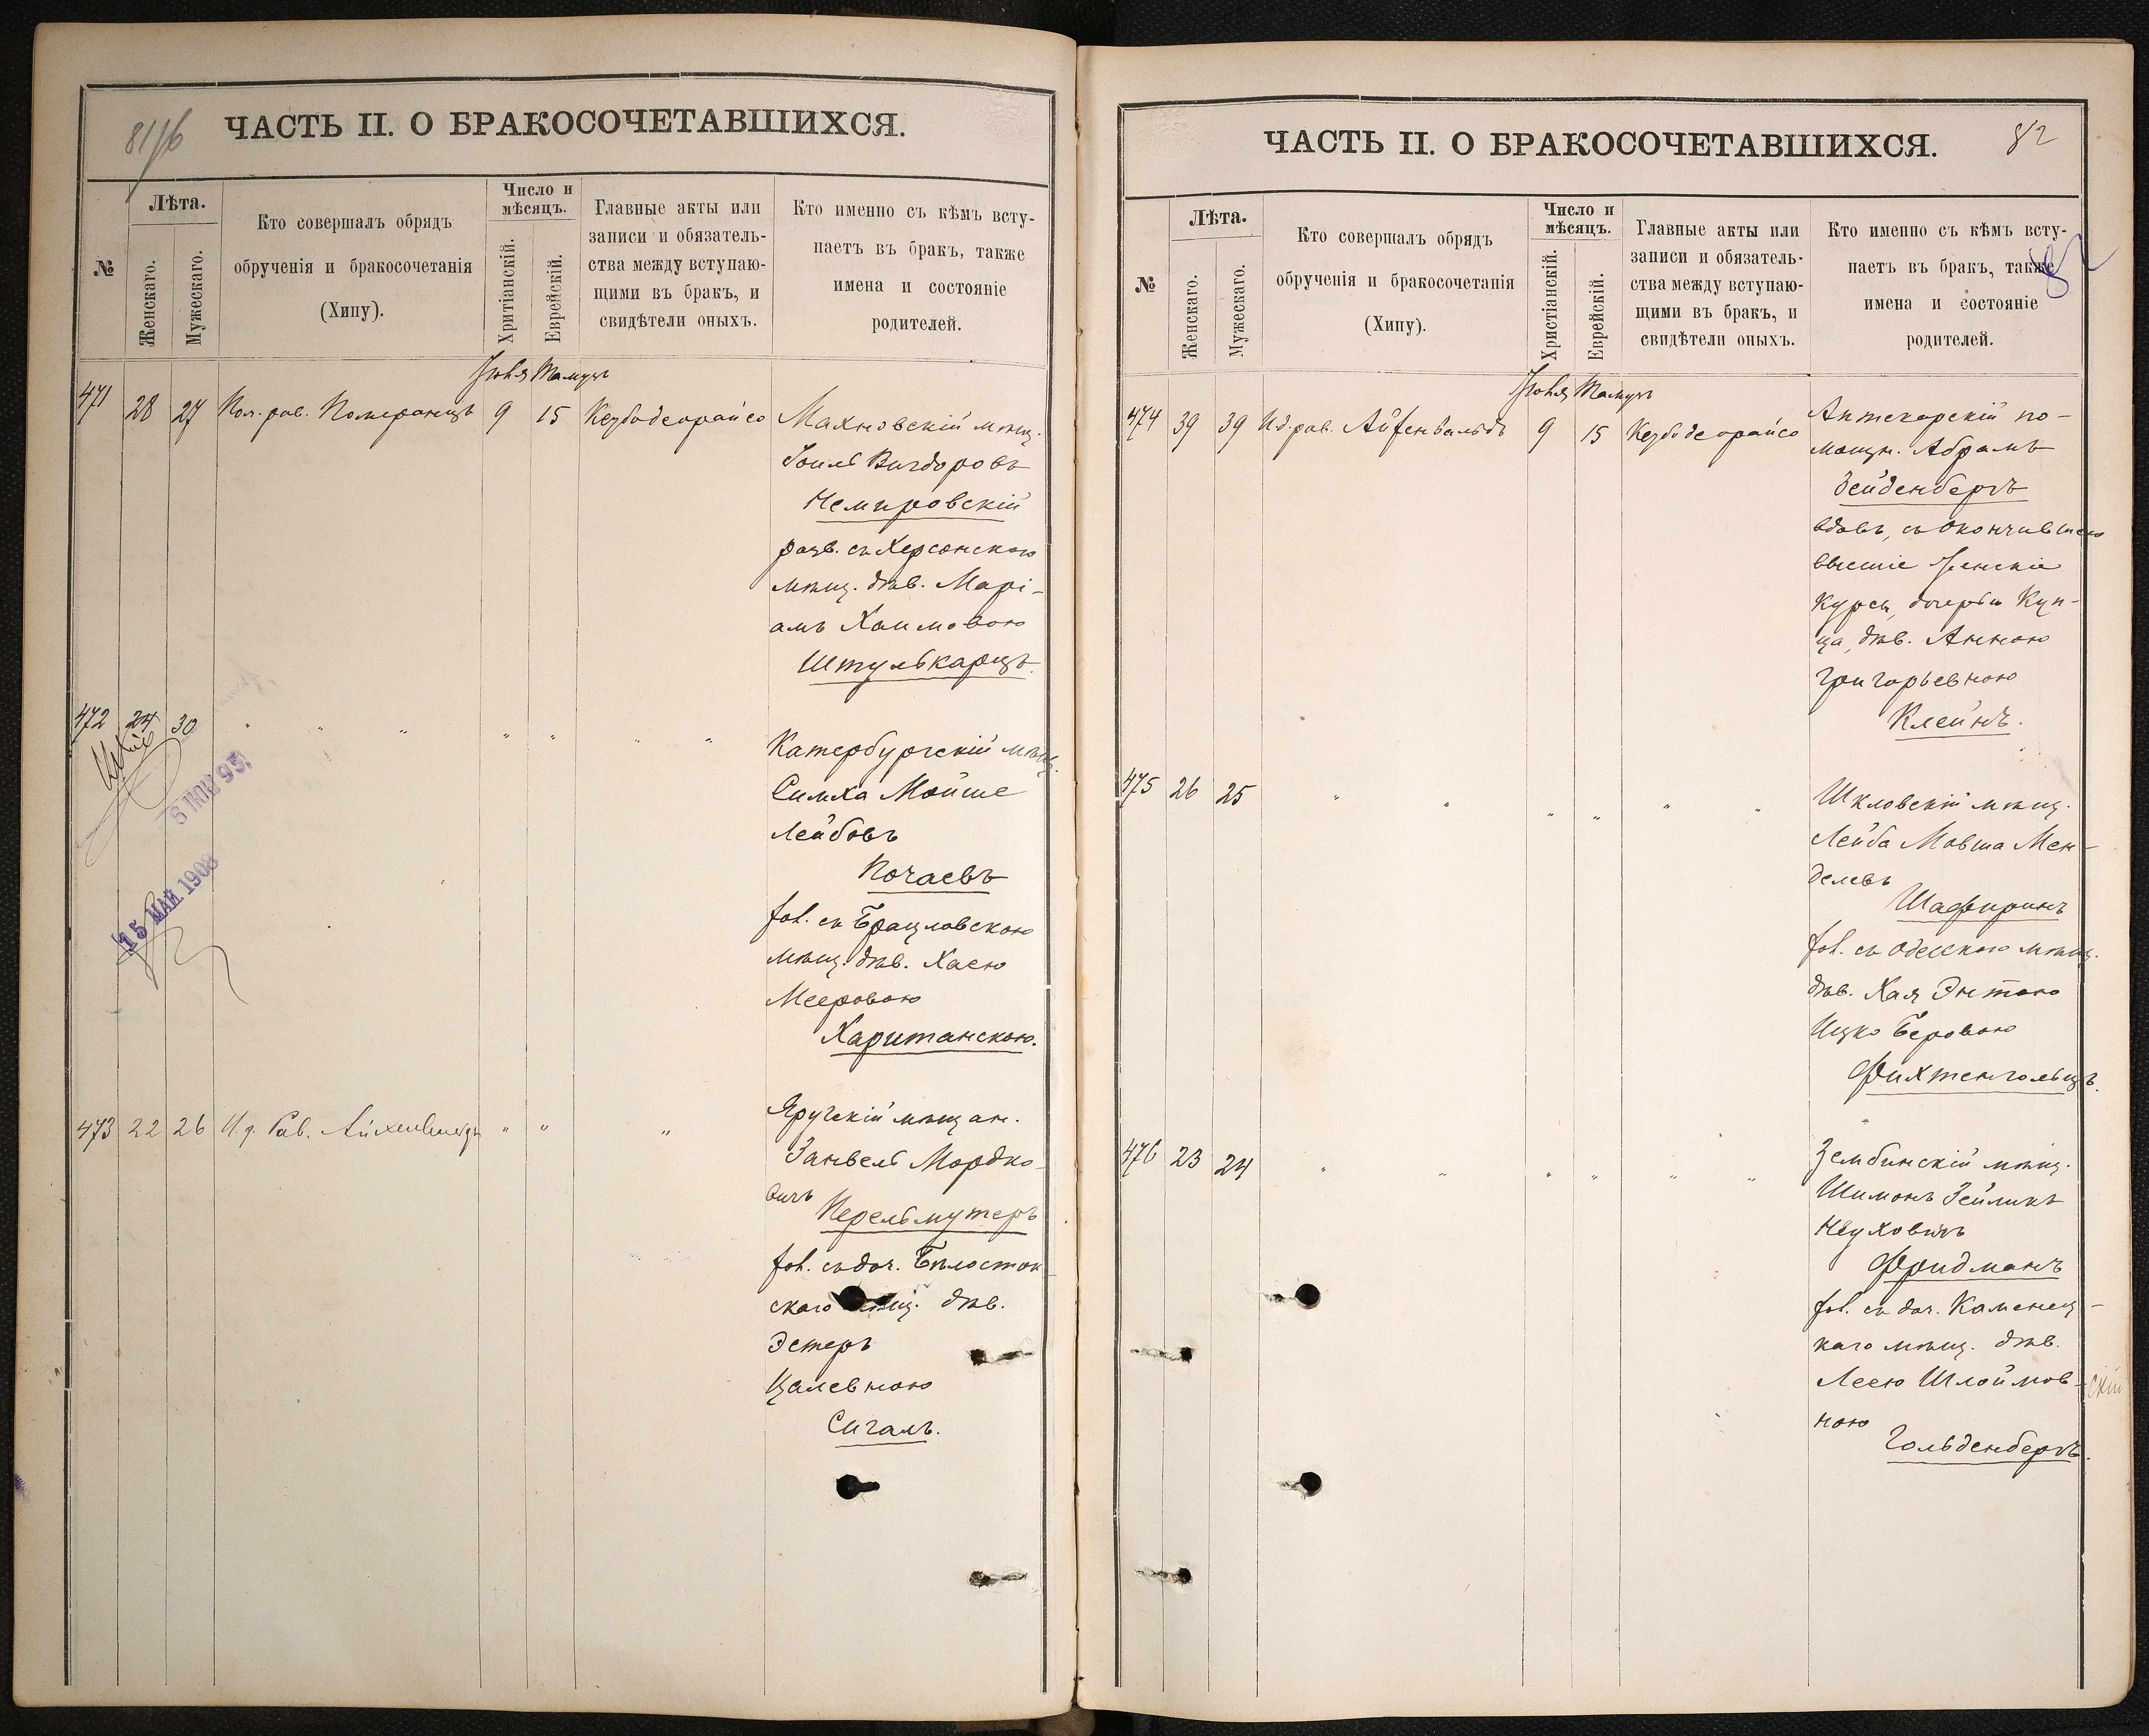 81/б
ЧАСТЬ II. О БРАКОСОЧЕТАВШИХСЯ.
№
Лѣта.
Женскаго.
Мужескаго.
Кто совершалъ обрядъ
обрученія и бракосочетанія
(Хипу).
Число и
мѣсяцъ.
Хритіанскій.
Еврейскій.
Главные акты или
записи и обязатель-
ства между вступаю-
щими въ бракъ, и
свидѣтели оныхъ.
Кто именно съ кѣмъ всту-
паетъ въ бракъ, также
имена и состояніе
родителей.
Іюля Тамузъ
471 28 27 Пом. рав. Померанцъ 9 15 Кезбодеорайсо Махновскій мѣщ.
Іоиль Вигдоровъ
Немировскій
разв. съ Херсонскою
мѣщ. дѣв. Марі-
амъ Хаимовою
Штулькарцъ.
472 24 30 " " " " " " "
6 ІЮН 93
15 МАЙ 1908
Катербургскій мѣщ.
Симха Мойше
Лейбовъ
Почаевъ
хол. съ Брацловскою
мѣщ. дѣв. Хасею
Мееровою
Хаританскою.
473 22 26 И. д. Рав. Айхенвальдъ " " "
Яругскій мѣщан.
Занвель Мордко-
вичъ
Перельмутеръ
хол. съ доч. Бѣлосток-
скаго мѣщ. дѣв.
Эстеръ
Цалевною
Сигалъ.
82
ЧАСТЬ II. О БРАКОСОЧЕТАВШИХСЯ.
82
№
Лѣта.
Женскаго.
Мужескаго.
Кто совершалъ обрядъ
обрученія и бракосочетанія
(Хипу).
Число и
мѣсяцъ.
Христіанскій.
Еврейскій.
Главные акты или
записи и обязатель-
ства между вступаю-
щими въ бракъ, и
свидѣтели оныхъ.
Кто именно съ кѣмъ всту-
паетъ въ бракъ, также
имена и состояніе
родителей.
Іюля Тамузъ
474 39 39 И д. рав. Айхенвальдъ 9 15 Кезбодеорайсо Аптекарскій по-
мощн. Абрамъ
Зейденбергъ
вдовъ, съ окончившею
высшіе женскіе
курсы, дочерью Куп-
ца, дѣв. Анною
Григорьевною
Клейнъ.
475 26 25 " " " " " "
Шкловскій мѣщ.
Лейба Мовша Мен-
делевъ
Шафиринъ
хол. съ Одесскою мѣщ.
дѣв. Хая Энтою
Ицко Беровою
Фихтенгольцъ.
476 23 24 " " " " " "
Зембинскій мѣщ.
Шимонъ Зейликъ
Неуховичъ
Фридманъ
хол. съ доч. Каменец-
каго мѣщ. дѣв.
Леею Шлоймов-
ною
Гольденбергъ.